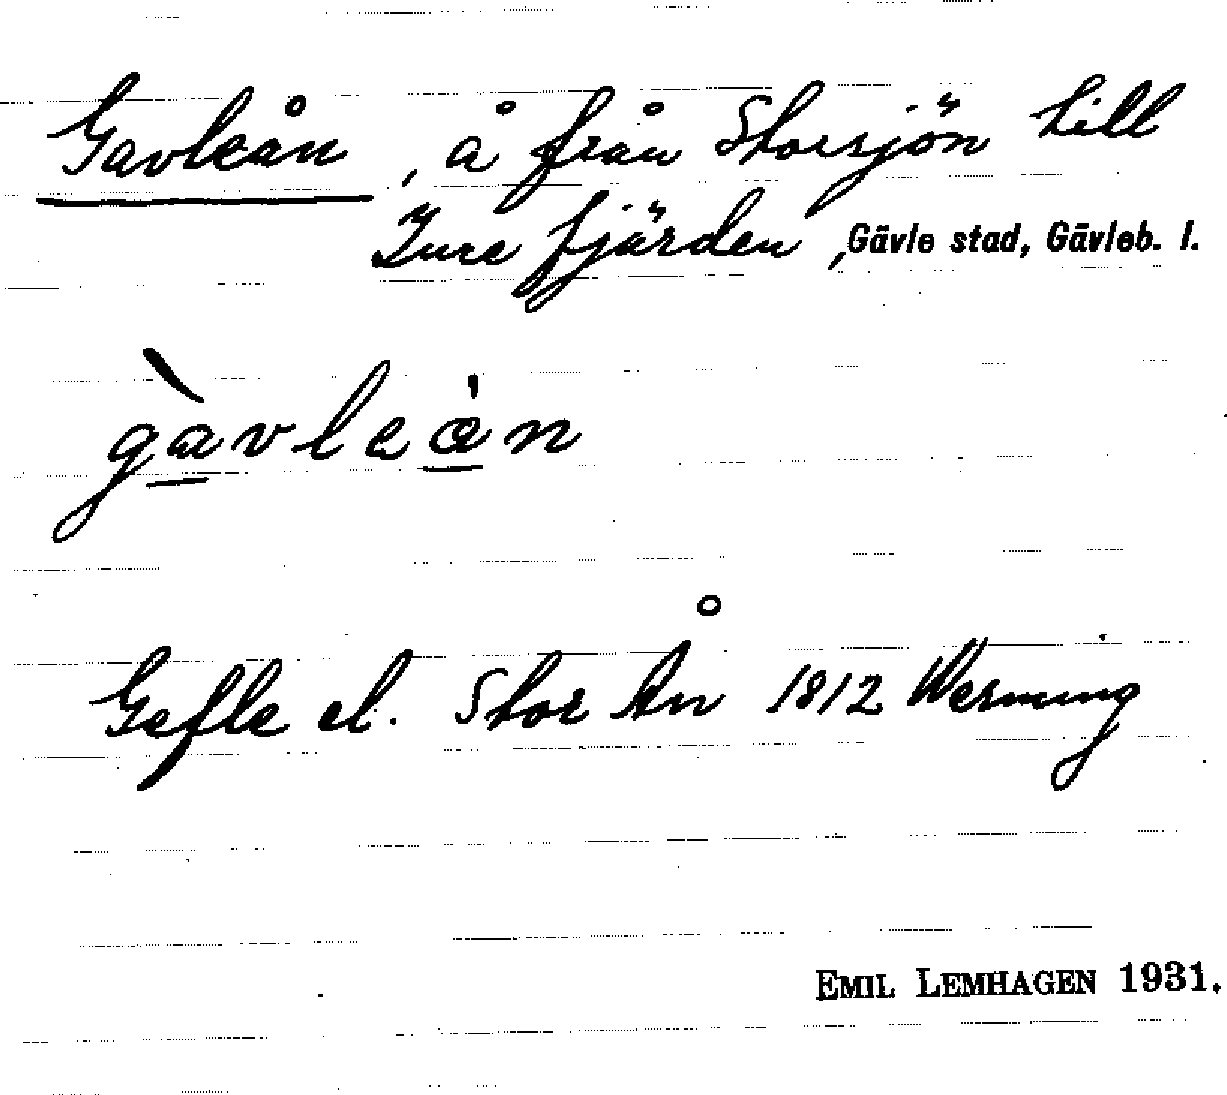 Gavleån, å från Storsjön till
Inre fjärden, Gävle stad, Gävleb. l.
gàvleȧn
Gefle el. Stor Ån 1812 Werming
EMIL LEMHAGEN 1931.